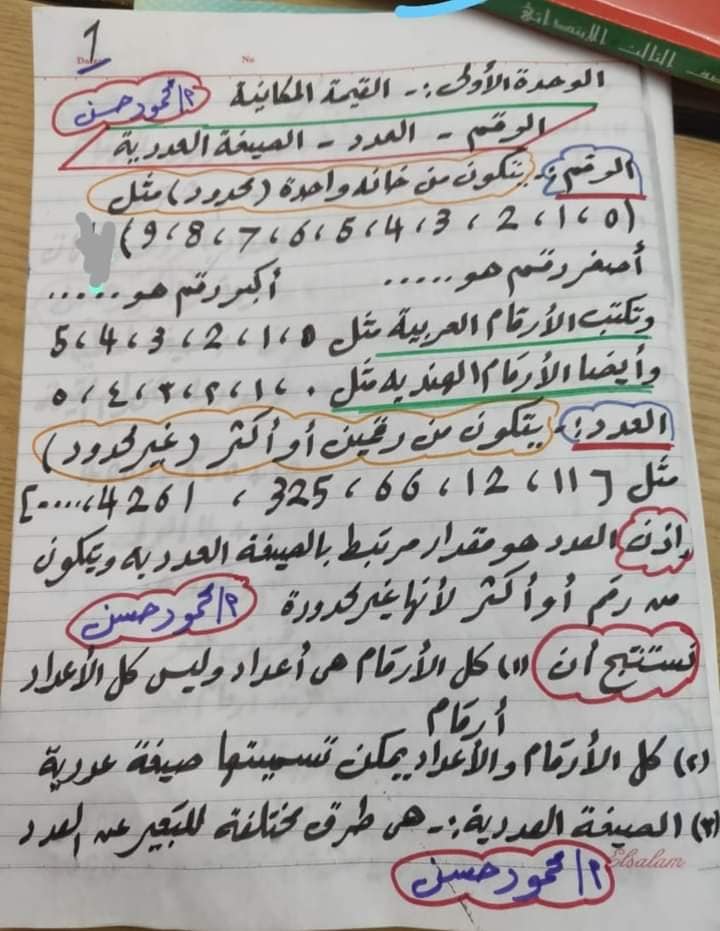 ف الثالث الابتدائي
1
Date
No
الوحدة الأولى :- القيمة المكانية
م/ محمود حسن
الرقم - العدد - الصيغة العددية
الرقم :- يتكون من خانه واحدة (محدود) مثل
(0 ، 1 ، 2 ، 3 ، 4 ، 5 ، 6 ، 7 ، 8 ، 9)
أصغر رقم هو ..... أكبر رقم هو .....
وتكتب الأرقام العربية مثل 0 ، 1 ، 2 ، 3 ، 4 ، 5
وأيضا الأرقام الهنديه مثل ٠ ، ١ ، ٢ ، ٣ ، ٤ ، ٥
العدد :- يتكون من رقمين أو أكثر (غير محدود)
مثل [ 11 ، 12 ، 66 ، 325 ، 4261 ، .... ]
إذن العدد هو مقدار مرتبط بالصيغة العدديه ويتكون
من رقم أو أكثر لأنها غير محدودة م/ محمود حسن
نستنتج أن (١) كل الأرقام هى أعداد وليس كل الأعداد
أرقام
(٢) كل الأرقام والأعداد يمكن تسميتها صيغة عددية
(٣) الصيغة العددية :- هى طرق مختلفة للتعبير عن العدد
م/ محمود حسن
Elsalam